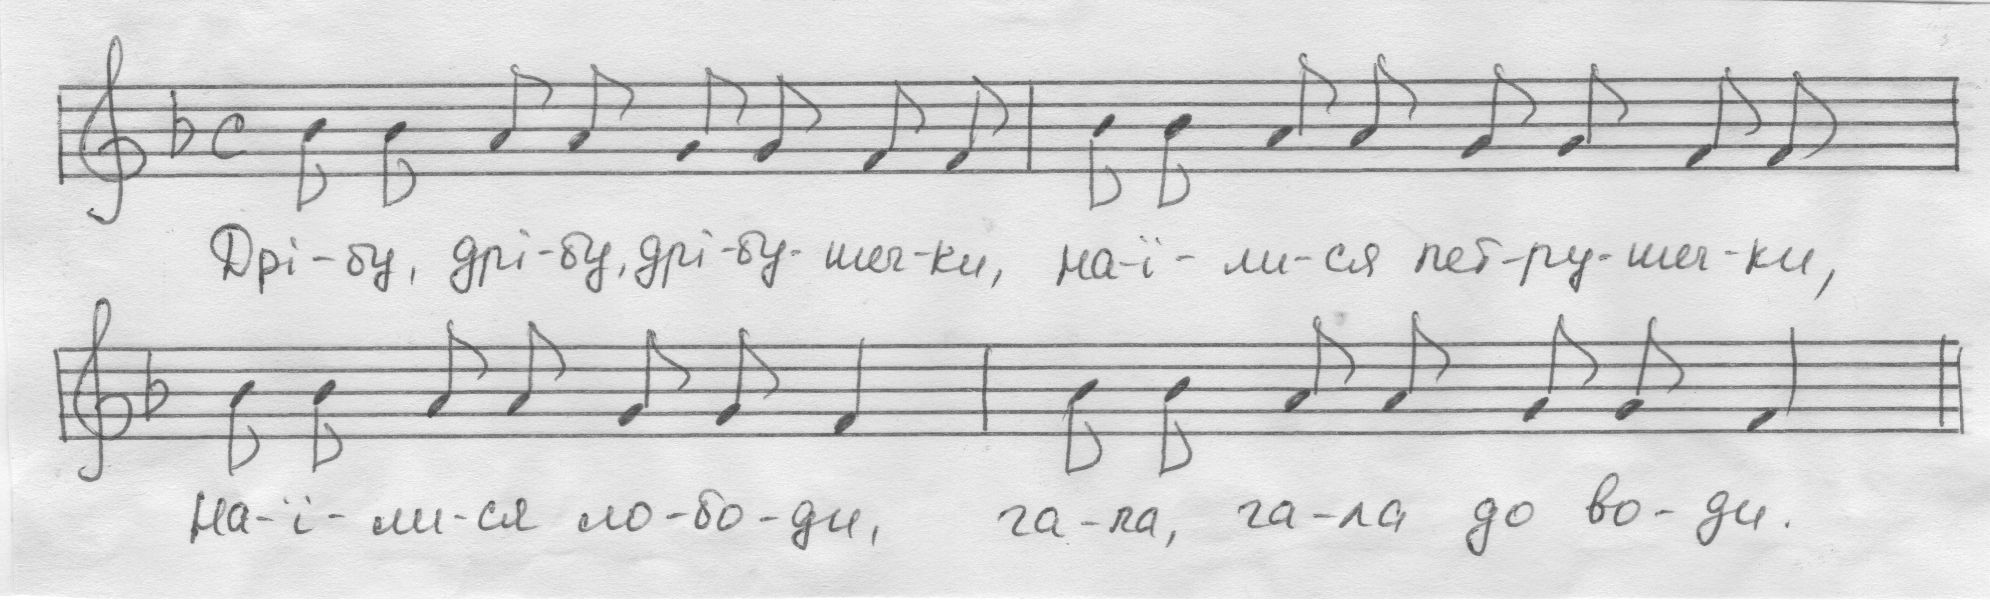 Дрі-бу, дрі-бу, дрі-бу-шеч-ки, на-ї-ли-ся пет-ру-шеч-ки,
На-ї-ли-ся ло-бо-ди, га-ла, га-ла до во-ди.